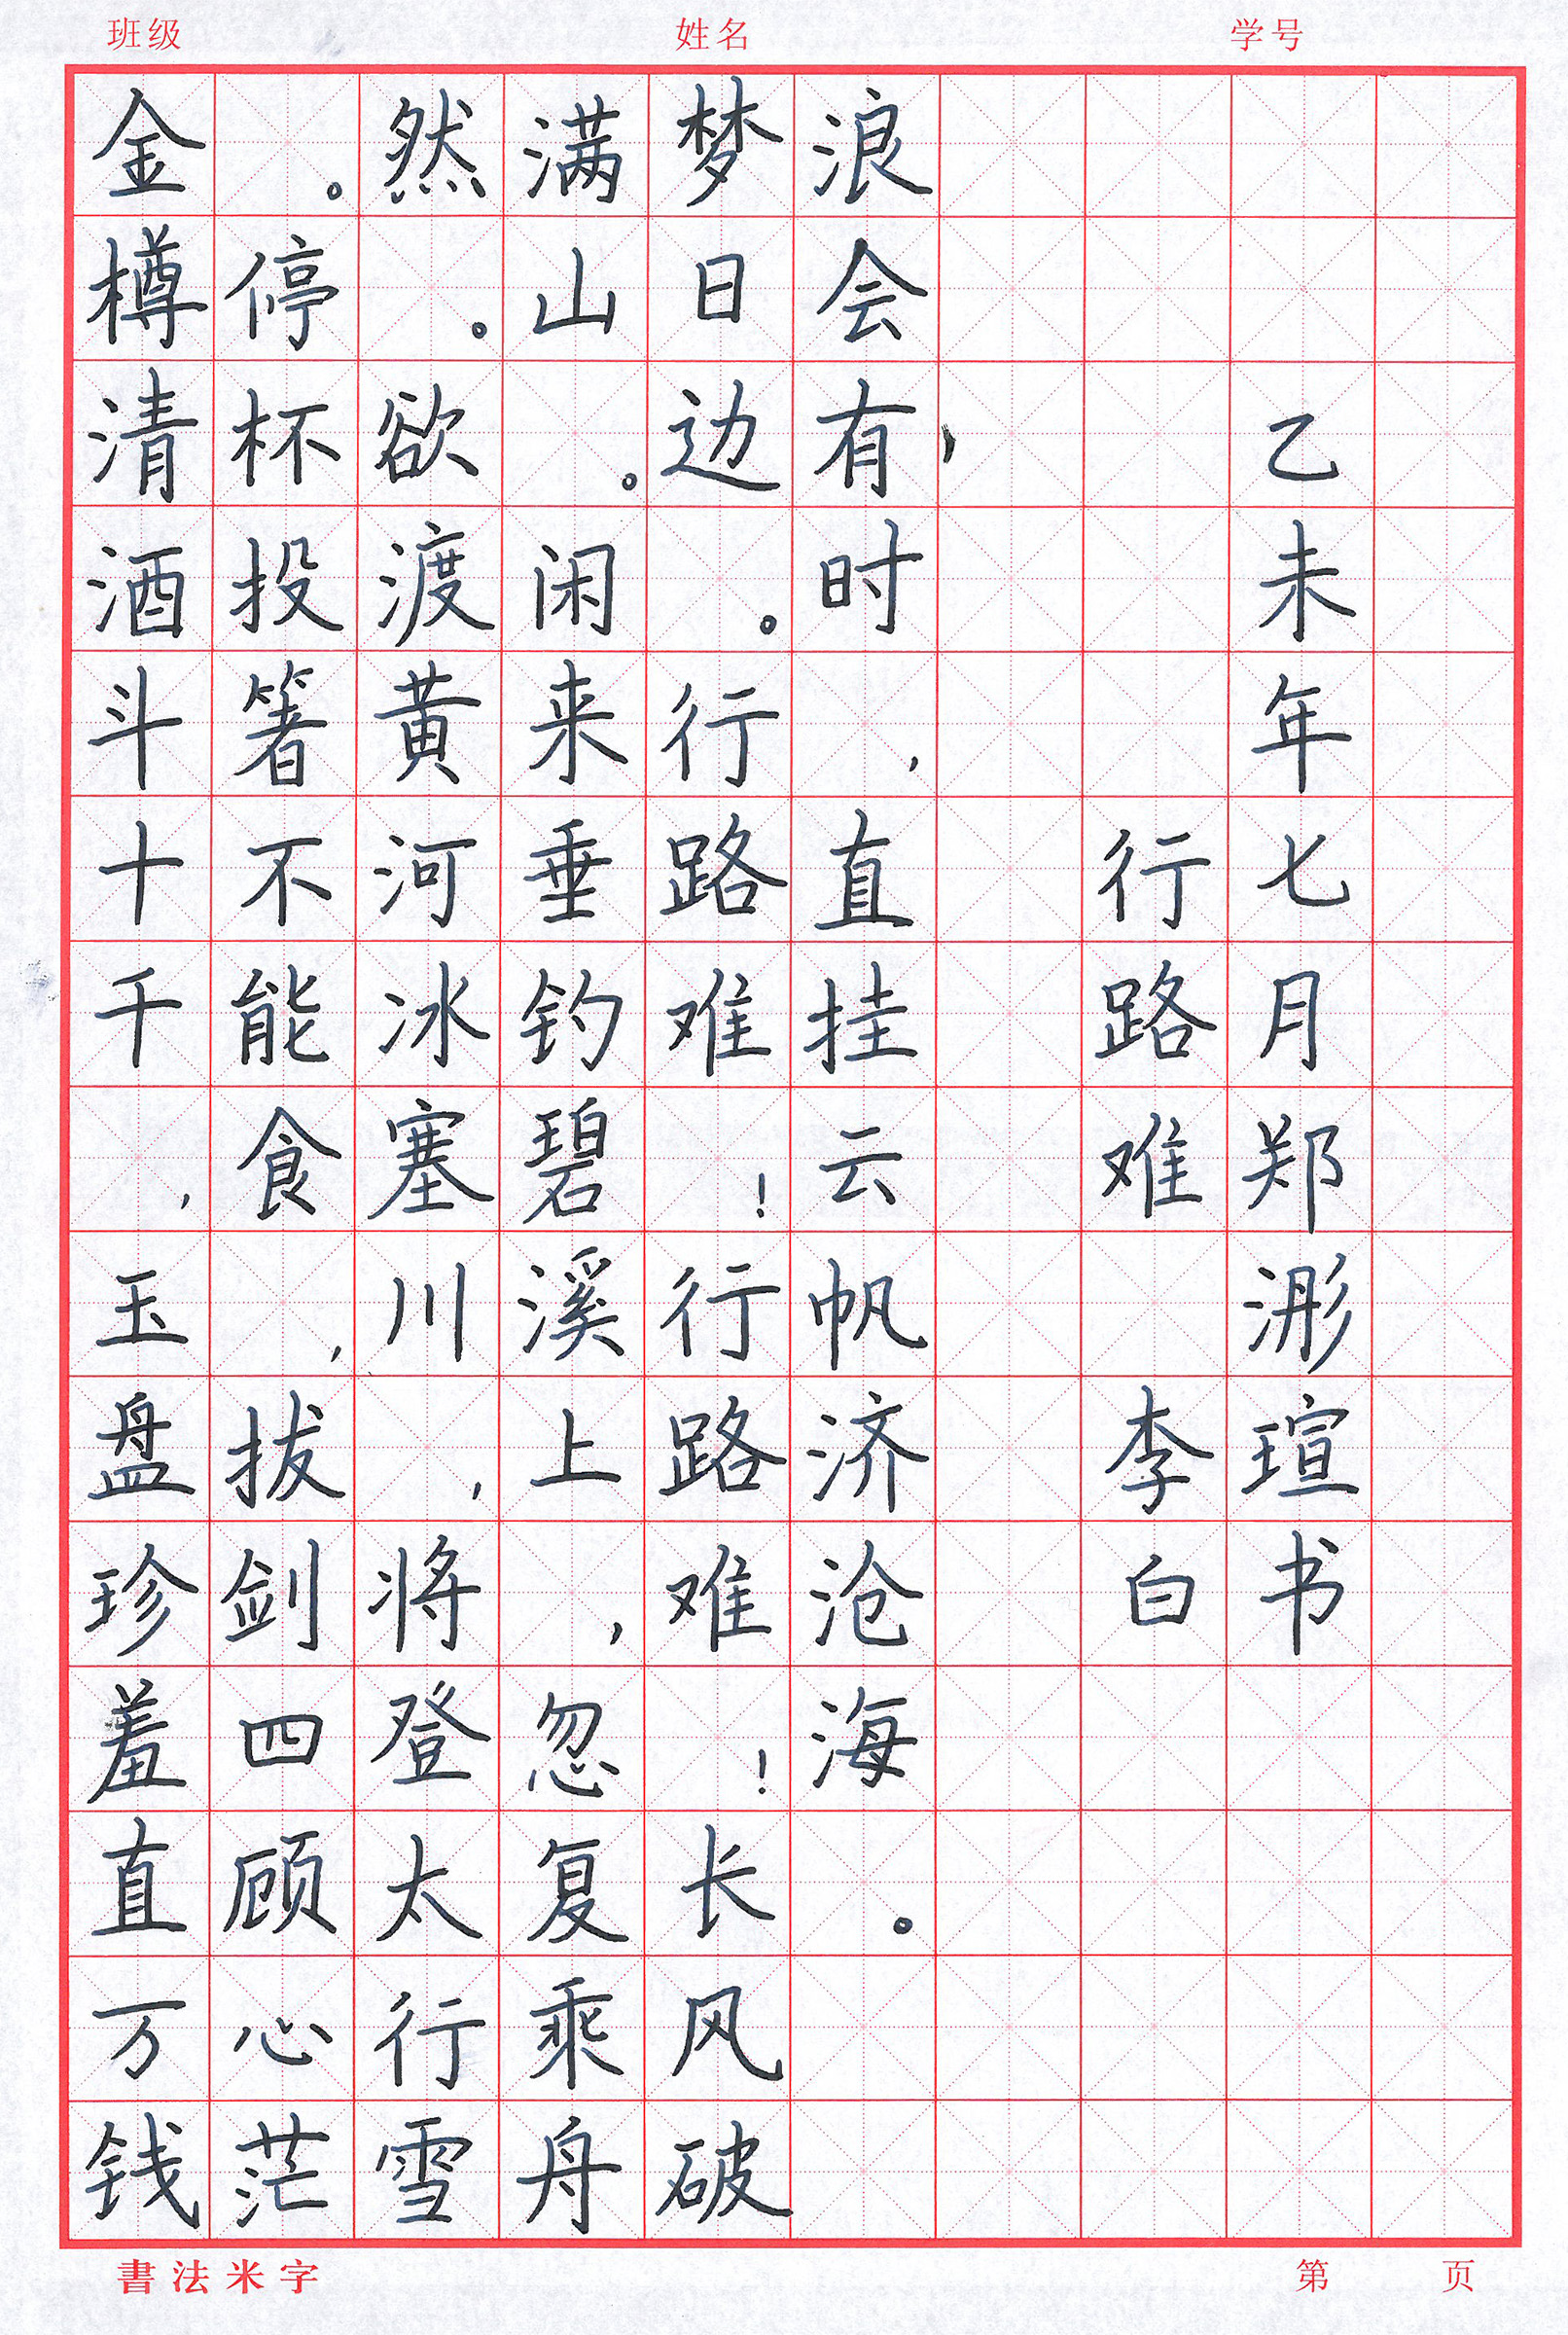 班级 姓名 学号
金樽清酒斗十千，玉盘珍羞直万钱
。停杯投箸不能食，拔剑四顾心茫
然。欲渡黄河冰塞川，将登太行雪
满山。闲来垂钓碧溪上，忽复乘舟
梦日边。行路难！行路难！长风破
浪会有时，直挂云帆济沧海。
行路难 李白
乙未年七月郑浵瑄书
書法米字 第 页